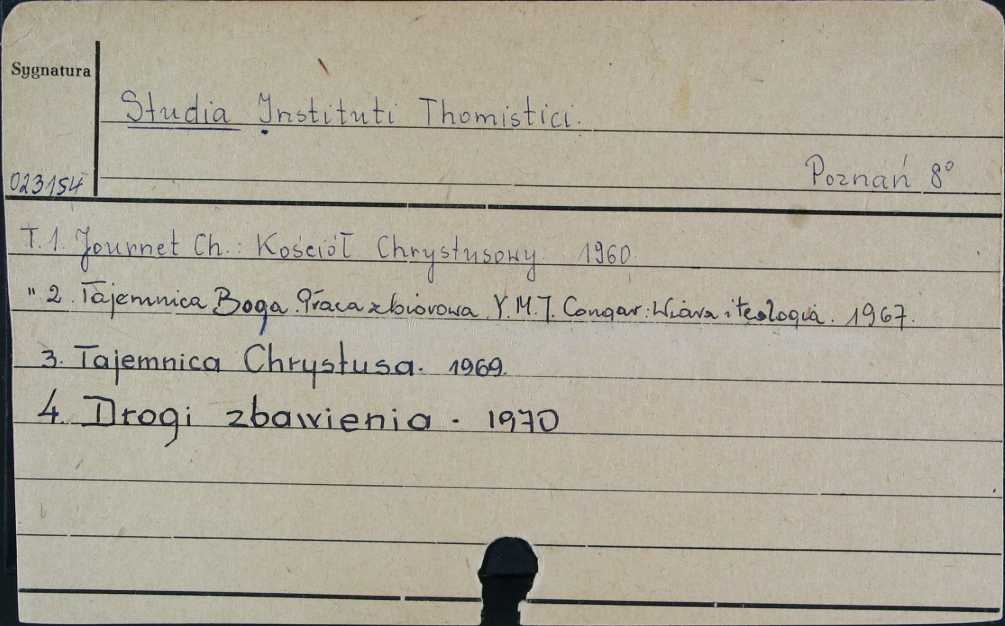 Sygnatura
Studia Instituti Thomistici.
023154
Poznań 8°
T. 1. Journet Ch.: Kościół Chrystusowy. 1960.
" 2. Tajemnica Boga. Praca zbiorowa. Y. M. J. Congar: Wiara i teologia. 1967.
3. Tajemnica Chrystusa. 1969.
4. Drogi zbawienia. 1970